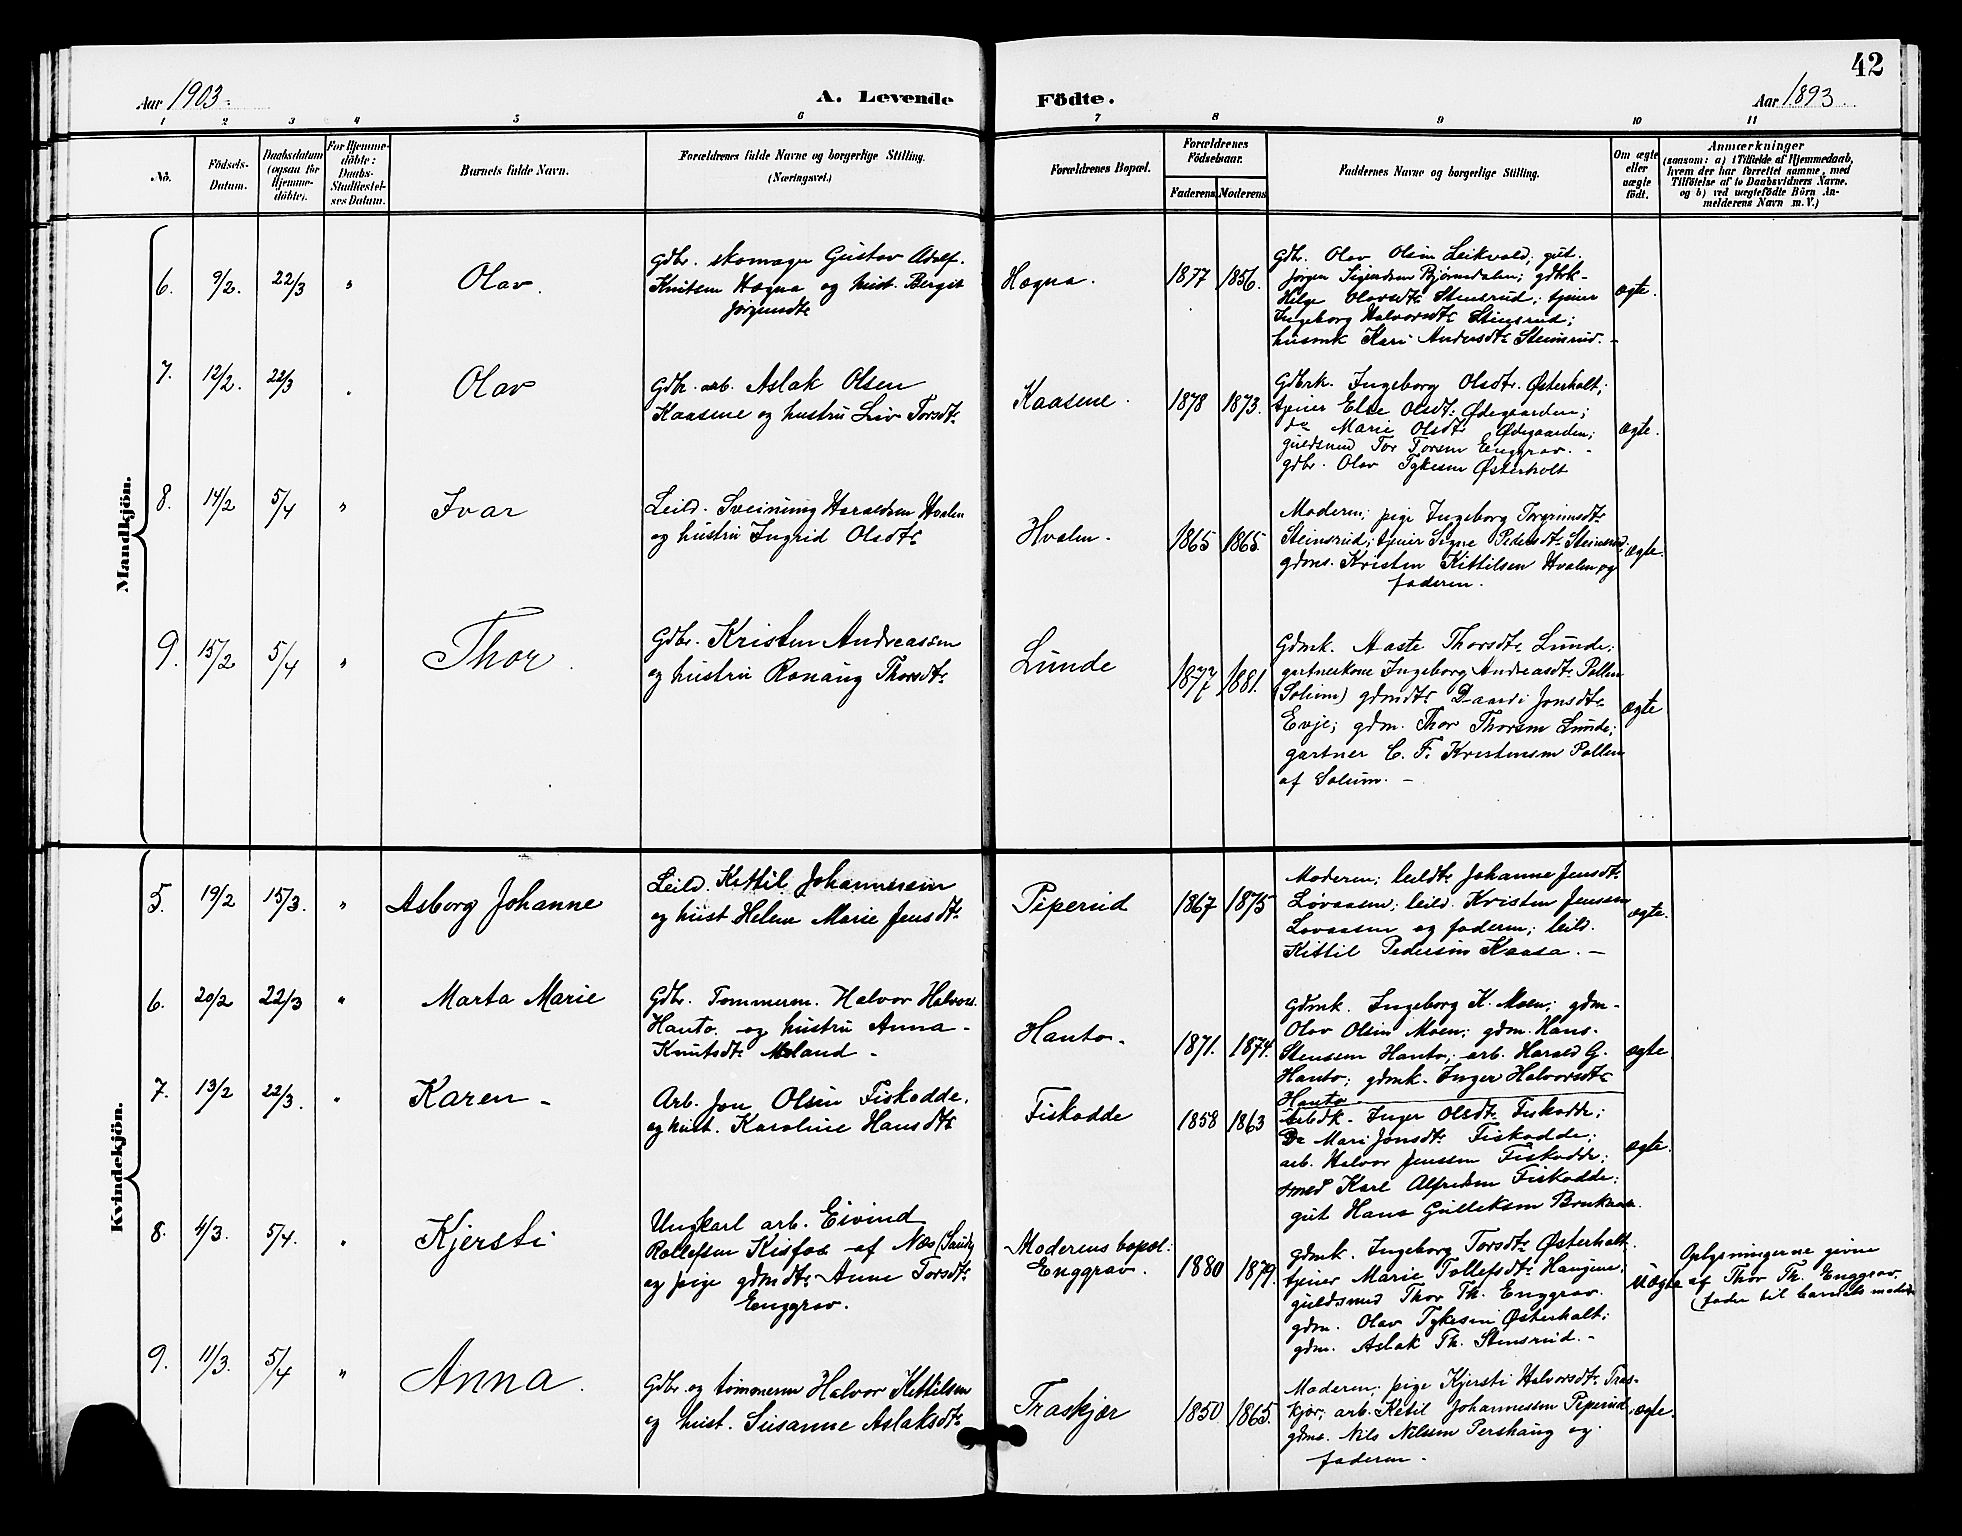 42
Aar 1903.
A. Levende Födte.
Aar 1893
1 2 3 4 5 6 7 8 9 10 11
No.
Födsels-Datum.
Daabsdatum (ogsaa for Hjemme-döbte).
For Hjemme-döbte: Daabs-Stadfæstel-ses Datum.
Barnets fulde Navn.
Forældrenes fulde Navne og borgerlige Stilling. (Næringsvei.)
Forældrenes Bopæl.
Forældrenes Födselsaar.
Faderens Moderens
Faddernes Navne og borgerlige Stilling.
Om ægte eller uægte födt.
Anmærkninger
(saasom: a) i Tilfælde af Hjemmedaab,
hvem der har forrettet samme, med
Tilföielse af to Daabsvidners Navne,
og b) ved uægtefödte Börn An-
melderens Navn m. V.)
Mandkjön.
6. 9/2. 22/3 " Olav.
Gdbr. skomager Gustav Adolf
Knutsen Høgna og hust. Bergit
Jørgensdtr
Høgna. 1877 1856.
Gdbr. Olav Olsen Leikvold; gut
Jørgen Sigurdsen Bjørndalen; gdbrk.
Helge Olavsdtr Stensrud; tjener
Ingeborg Halvorsdtr Stensrud;
husmk Kari Andersdtr Stensrud. -
ægte.
7. 12/2. 22/3 " Olav
Gdbr. arb. Aslak Olsen
Kaasene og hustru Liv Torsdtr
Kaasene. 1878 1873.
Gdbrk. Ingeborg Olsdtr. Østerholt;
tjener Else Olsdtr. Ødegaarden;
do Marie Olsdtr Ødegaarden;
guldsmed Tor Torsen Enggrav. -
gdbr. Olav Tykesen Østerholt
ægte.
8. 14/2 5/4 " Ivar
Leild. Sveinung Haraldsen Hvalen
og hustru Ingrid Olsdtr
Hvalen. 1865 1865.
Moderen; pige Ingeborg Torgrimsdtr
Steinsrud; tjener Signe Pedersdtr Steinsrud;
gdms. Kristen Kittilsen Hvalen og
faderen.
ægte.
9. 15/2 5/4 " Thor.
Gdbr. Kristen Andreassen
og hustru Ronaug Thorsdtr
Lunde 1877 1881.
Gdmk. Aaste Thorsdtr Lunde;
gartnerkone Ingeborg Andreasdtr Pollen
(Solum) gdmdtr Jonsdtr
Evje; gdm. Thor Thorsen Lunde;
gartner C. F. Kristensen Pollen
af Solum. -
ægte
Kvindekjön.
5. 19/2 15/3. " Asborg Johanne
Leild. Kittil Johannesen
og hust Helene Marie Jensdtr
Piperud 1867 1875
Moderen; leildtr Johanne Jensdtr
Løvaasen; leild. Kristen Jensen
Løvaasen og faderen; leild.
Kittil Pedersen Kaasa. -
ægte.
6. 20/2 22/3 " Marta Marie
Gdbr. Tømmerm. Halvor Halvors.
Hanto og hustru Anna
Knutsdtr Moland -
Hanto. 1871. 1874.
Gdmk. Ingeborg K. Moen; gdm-
Olav Olsen Moen; gdm. Hans
Stensen Hanto; arb. Harald G.
Hanto; gdmk. Inger Halvorsdtr
Hanto
ægte
7. 13/2 22/3. " Karen -
Arb. Jon Olsen Fiskodde,
og hust. Karoline Hansdtr
Fiskodde 1858 1863
Arbdk. Inger Olsdtr Fiskodde;
Do Mari Jonsdtr Fiskodde;
arb. Halvor Jenssen Fiskodde;
smed Karl Alfredsen Fiskodde;
gut Hans Gulleksen
ægte.
8. 4/3. 5/4. " Kjersti
Ungkarl arb. Eivind
Rollefsen Kisfos af Næs
og pige gdmdtr Anne Torsdtr
Enggrav.
Moderens bopæl:
Enggrav. 1880 1879.
gdmk. Ingeborg Torsdtr Østerholt.
tjener Marie Tollefsdtr
guldsmed Thor Th. Enggrav.
gdm. Olav Tykesen Østerholt;
gdm. Aslak Th. Stensrud. -
uægte
Oplysningerne givne
af Thor Th. Enggrav.
(fader til barnets moder
9. 11/3. 5/4 " Anna.
Gdbr og tømmerm Halvor Kittilsen
og hust. Susanne Aslaksdtr
Traskjær 1850 1865.
Moderen; pige Kjersti Halvorsdtr Tras-
kjær; arb. Ketil Johannessen Piperud;
gdms. Nils Nilsen Pershaug og
faderen.
ægte.